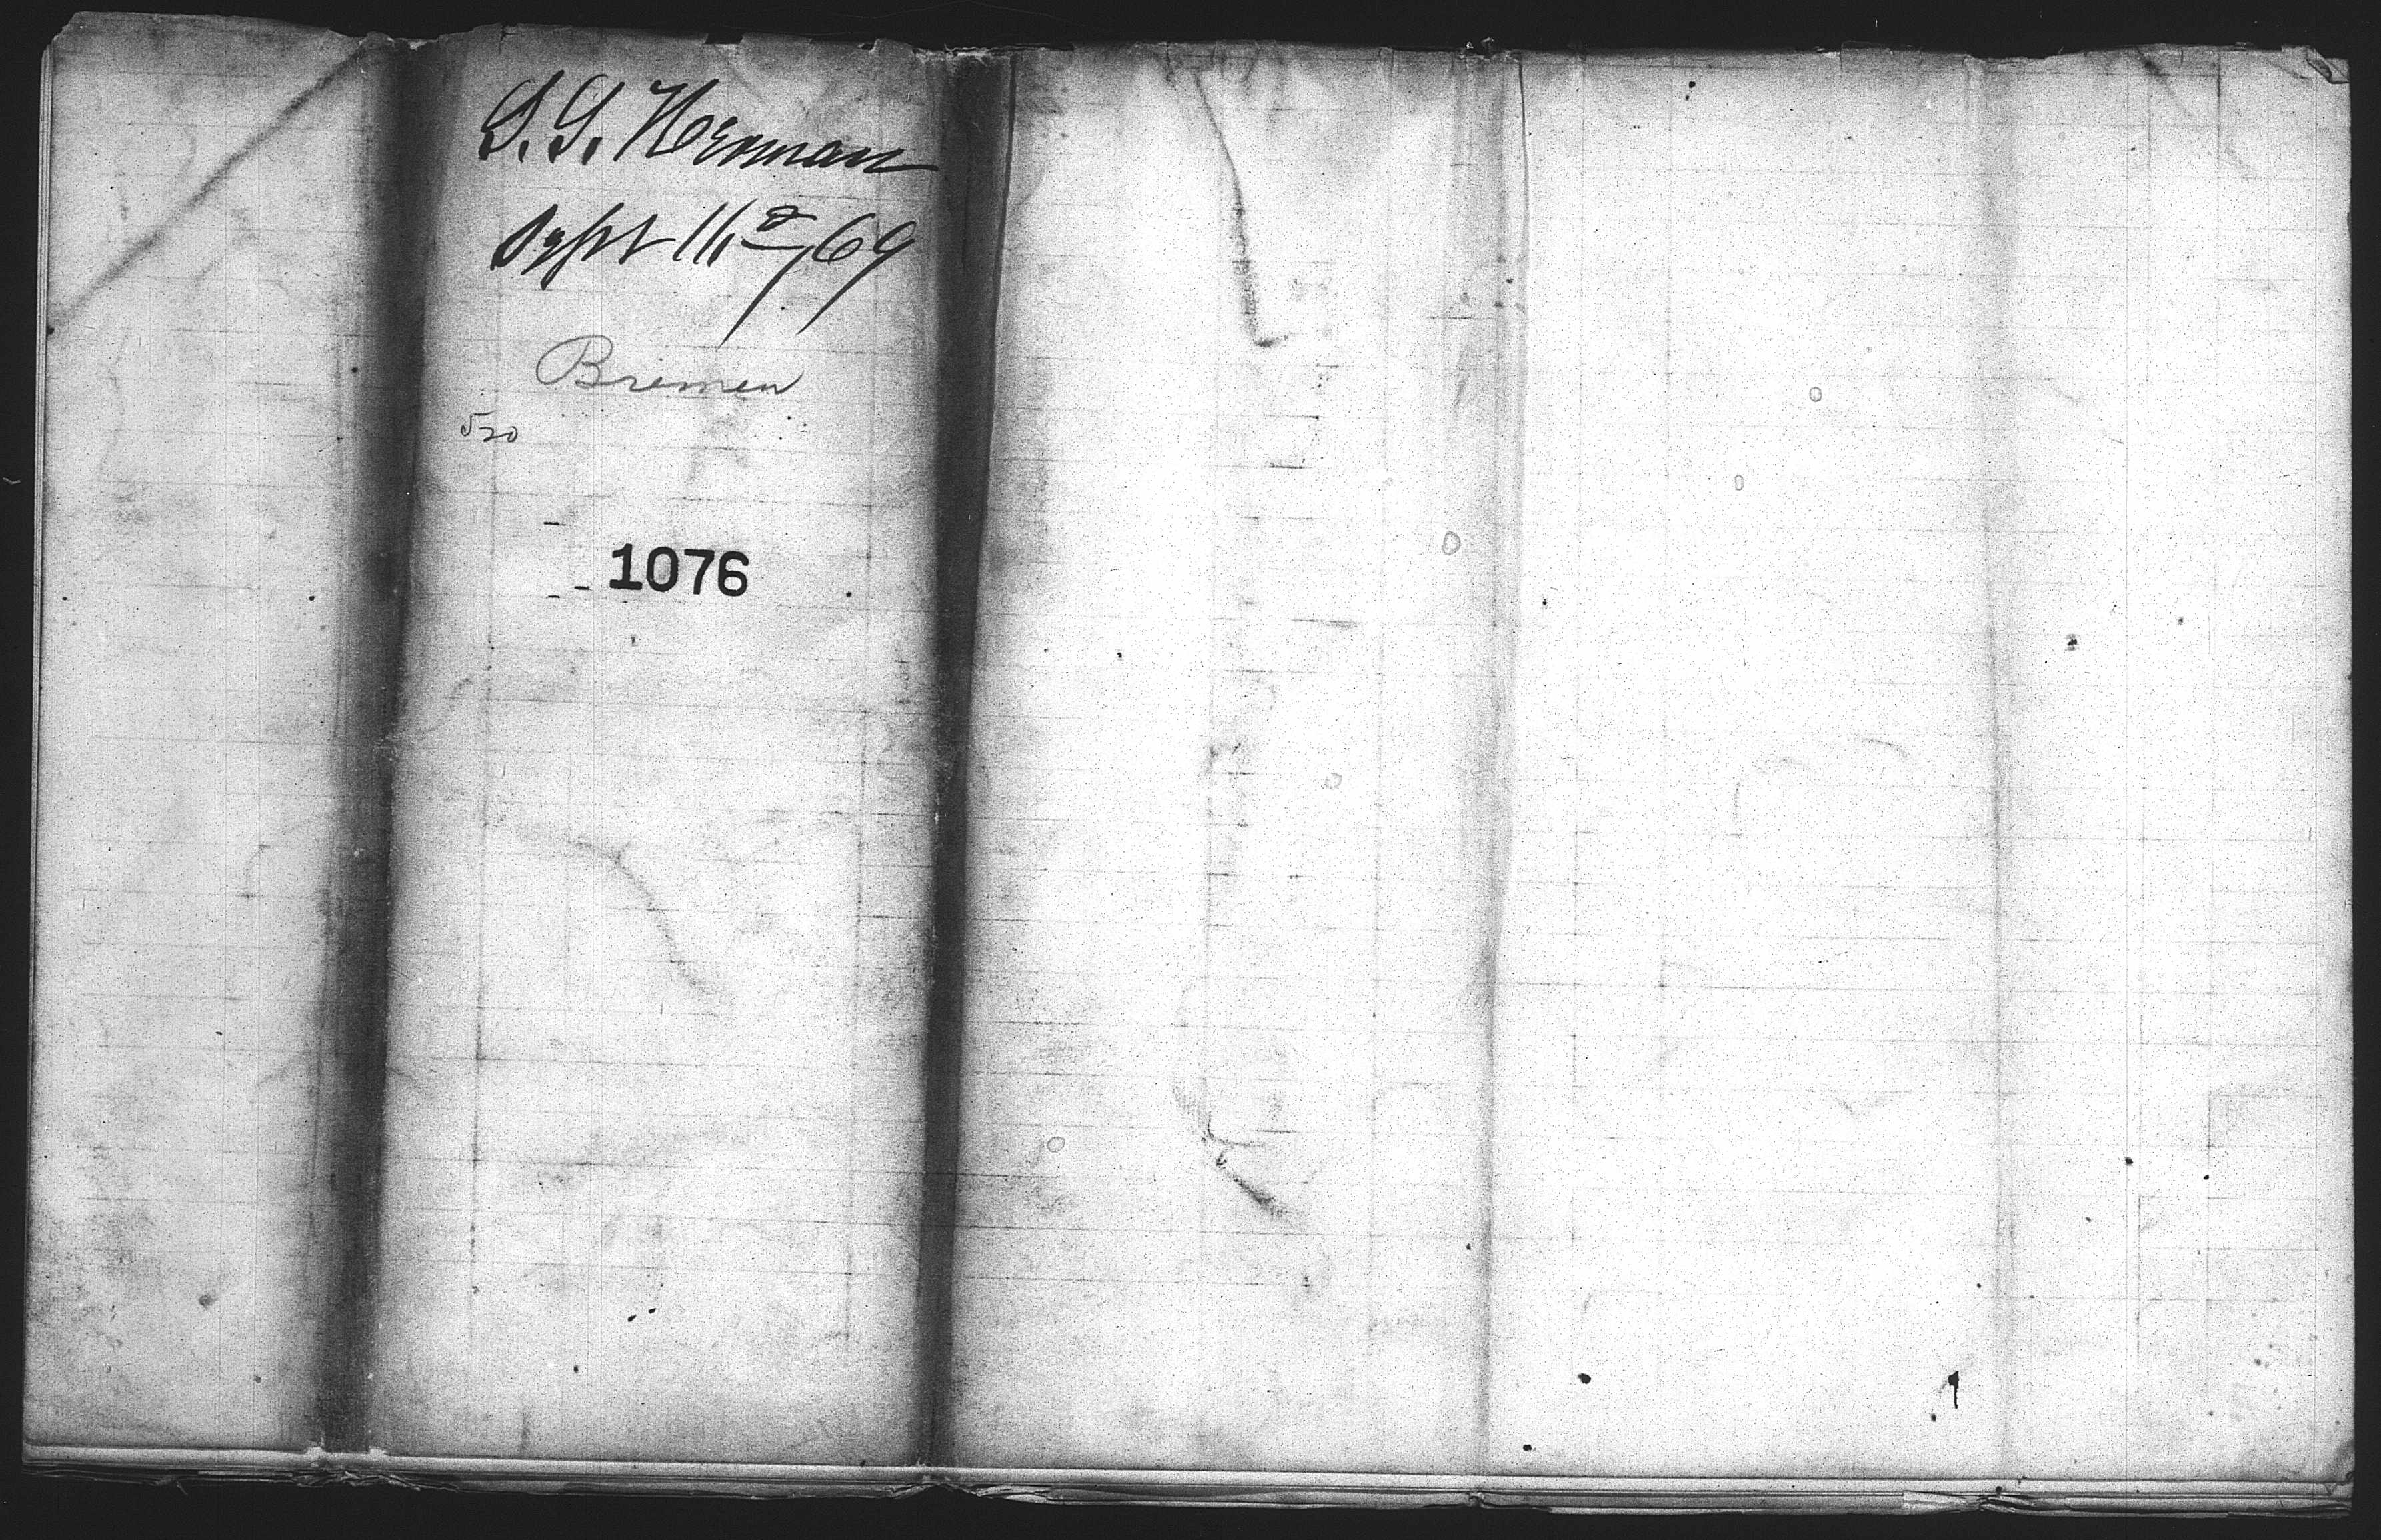 S. S. Herman
Sept 11th/69
Bremen
520
1076